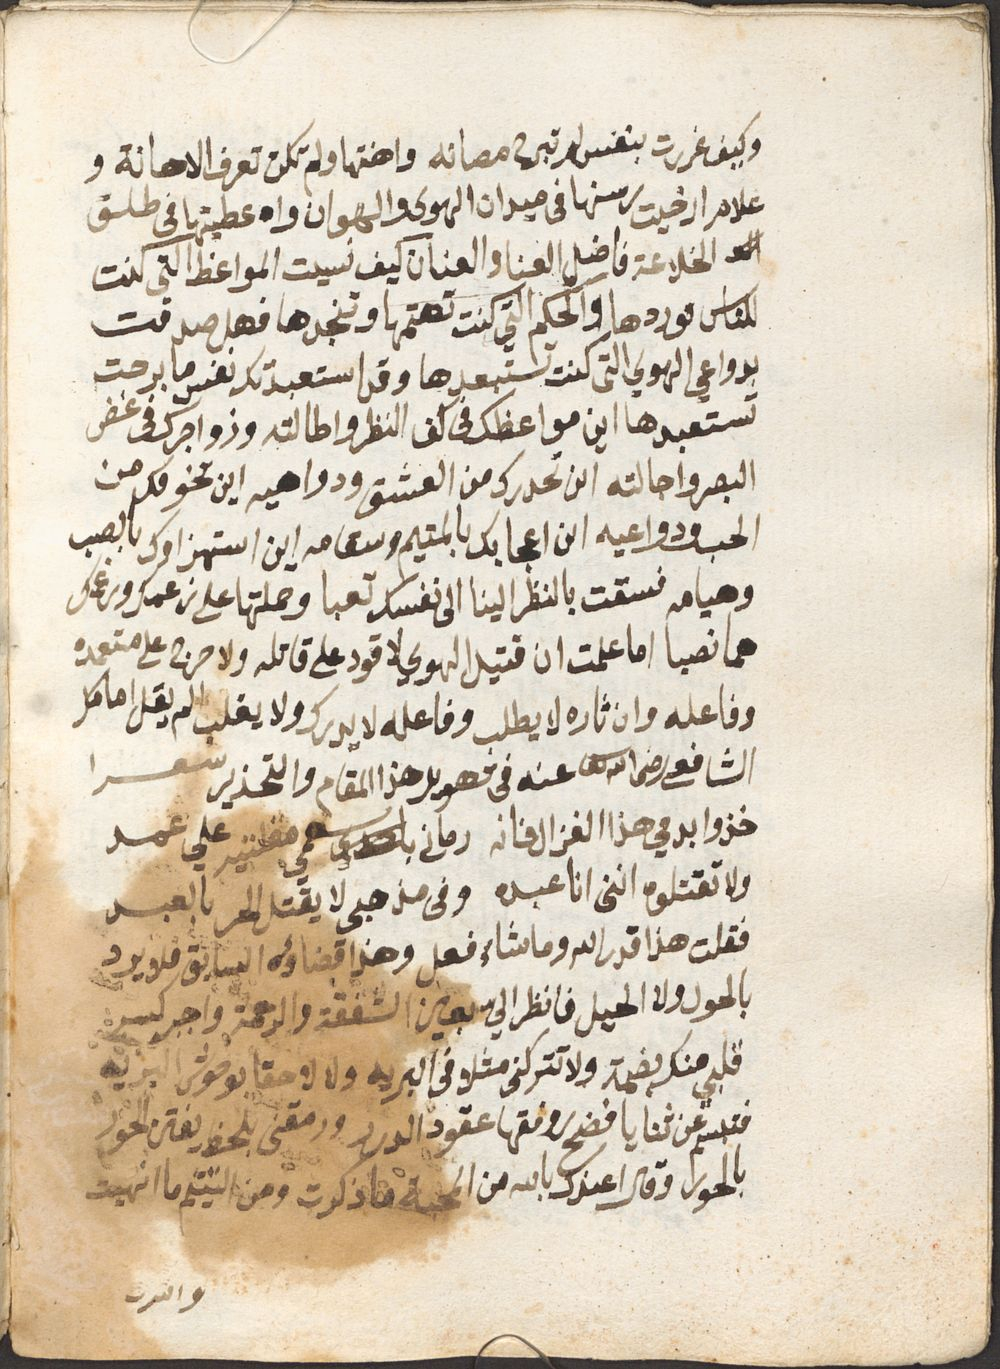 وكيف غررت بنفس لم تبرح مصانه واهنتها ولم تكن تعرف الاهانة و
علام ارخيت رسنها في ميدان الهوى والهوان واعطيتها في طلق
الخلاعة فاضل العنا والعنان كيف نسيت المواعظ التي كنت
للناس توردها والحكم التي كنت تتهمها وتنجدها فهل صدقت
بدواعي الهوي التي كنت تستبعدها وقد استعبدتك نفس ما برحت
تستعبدها اين مواعظك في كف النظر واطالته وزواجرك في غض
البصر واحالته اين تحذيرك من العشق ودواهيه اين تخوفك من
الحب ودواعيه اين اعجابك بالمتيم وسقامه اين استهزاوك بالصب
وهيامه فسقت بالنظر الينا الى نفسك تعبا وحملتها على زعمك ورغمك
هما نصبا اما علمت ان قتيل الهوي لا قود على قاتله ولا حرج على متعمده
وفاعله وان ثاره لا يطلب وفاعله لا يدرك ولا يغلب الم يقل امامك
الشافعي رضي الله عنه في تهويل هذا المقام والتحذير شعرا
خذوا بدمي هذا الغزال فانه رماني بسهمي مقلتيه علي عمد
ولا تقتلوه انني انا عبده وفي مذهبي لا يقتل الحر بالعبد
فقلت هذا قدر الله وما شاء فعل وهذا قضاؤه السابق فلا يرد
بالحول ولا الحيل فانظر الي بعين الشفقة والرحمة واجبر كسر
قلبي منك بضمة ولا تتركني مثلا في البريه ولا لاحقا بوحوش البريه
فتبسم عن ثنايا فضح رونقها عقود الدرر ورمقني بلحظ يفتن الحور
بالحور وقال اعيذك بالله من المحبة ما ذكرت ومن التتيم ما انهيت